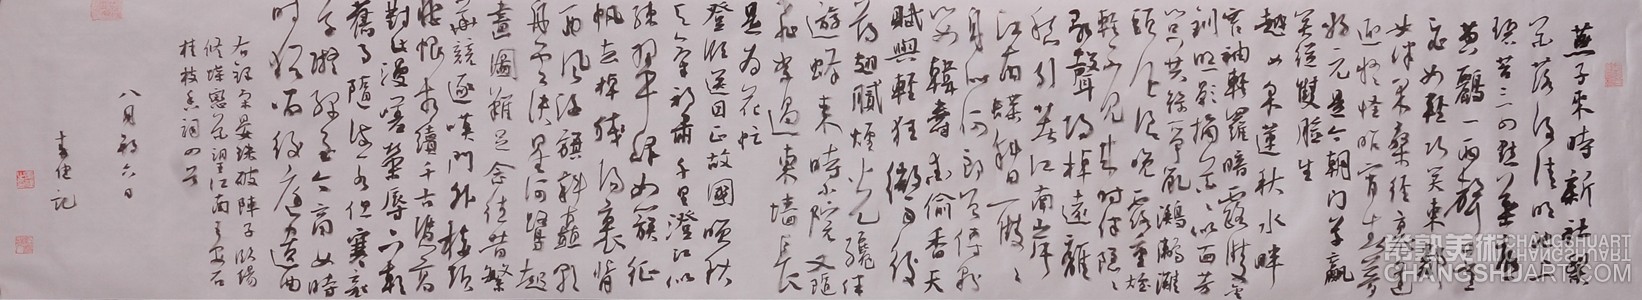 燕子來時新社梨
花落後清明池上
碧苔三四點葉底
黃鸝一兩聲日長
飛絮輕巧笑東鄰
女伴采桑徑裏逢
迎疑怪昨宵春夢
好元是今朝鬥草贏
笑從雙臉生
越女采蓮秋水畔
窄袖輕羅暗露雙金
釧照影摘花花似面芳
心只共絲爭亂鸂鶒灘
頭風浪晚霧重煙
輕不見來時伴隱隱
歌聲歸棹遠離
愁引著江南岸
江南蝶斜日一雙雙
身似何郎全傅粉
心如韓壽愛偷香天
賦與輕狂微雨後
薄翅膩煙光才伴
遊蜂來時小院又隨
飛絮過東牆長
是為花忙
登臨送目正故國晚秋
天氣初肅千里澄江似
練翠峰如簇征
帆去棹殘陽裏背
西風酒旗斜矗彩
舟雲淡星河鷺起
畫圖難足念往昔繁
華競逐嘆門外樓頭
悲恨相續千古憑高
對此漫嗟榮辱六朝
舊事隨流水但寒衰
草凝綠至今商女時
時猶唱後庭遺曲
右錄宋晏殊破陣子歐陽
修蝶戀花望江南王安石
桂枝香詞四首
八月初六日
記
常熟美術
CHANGSHUART
CHANGSHUART.COM